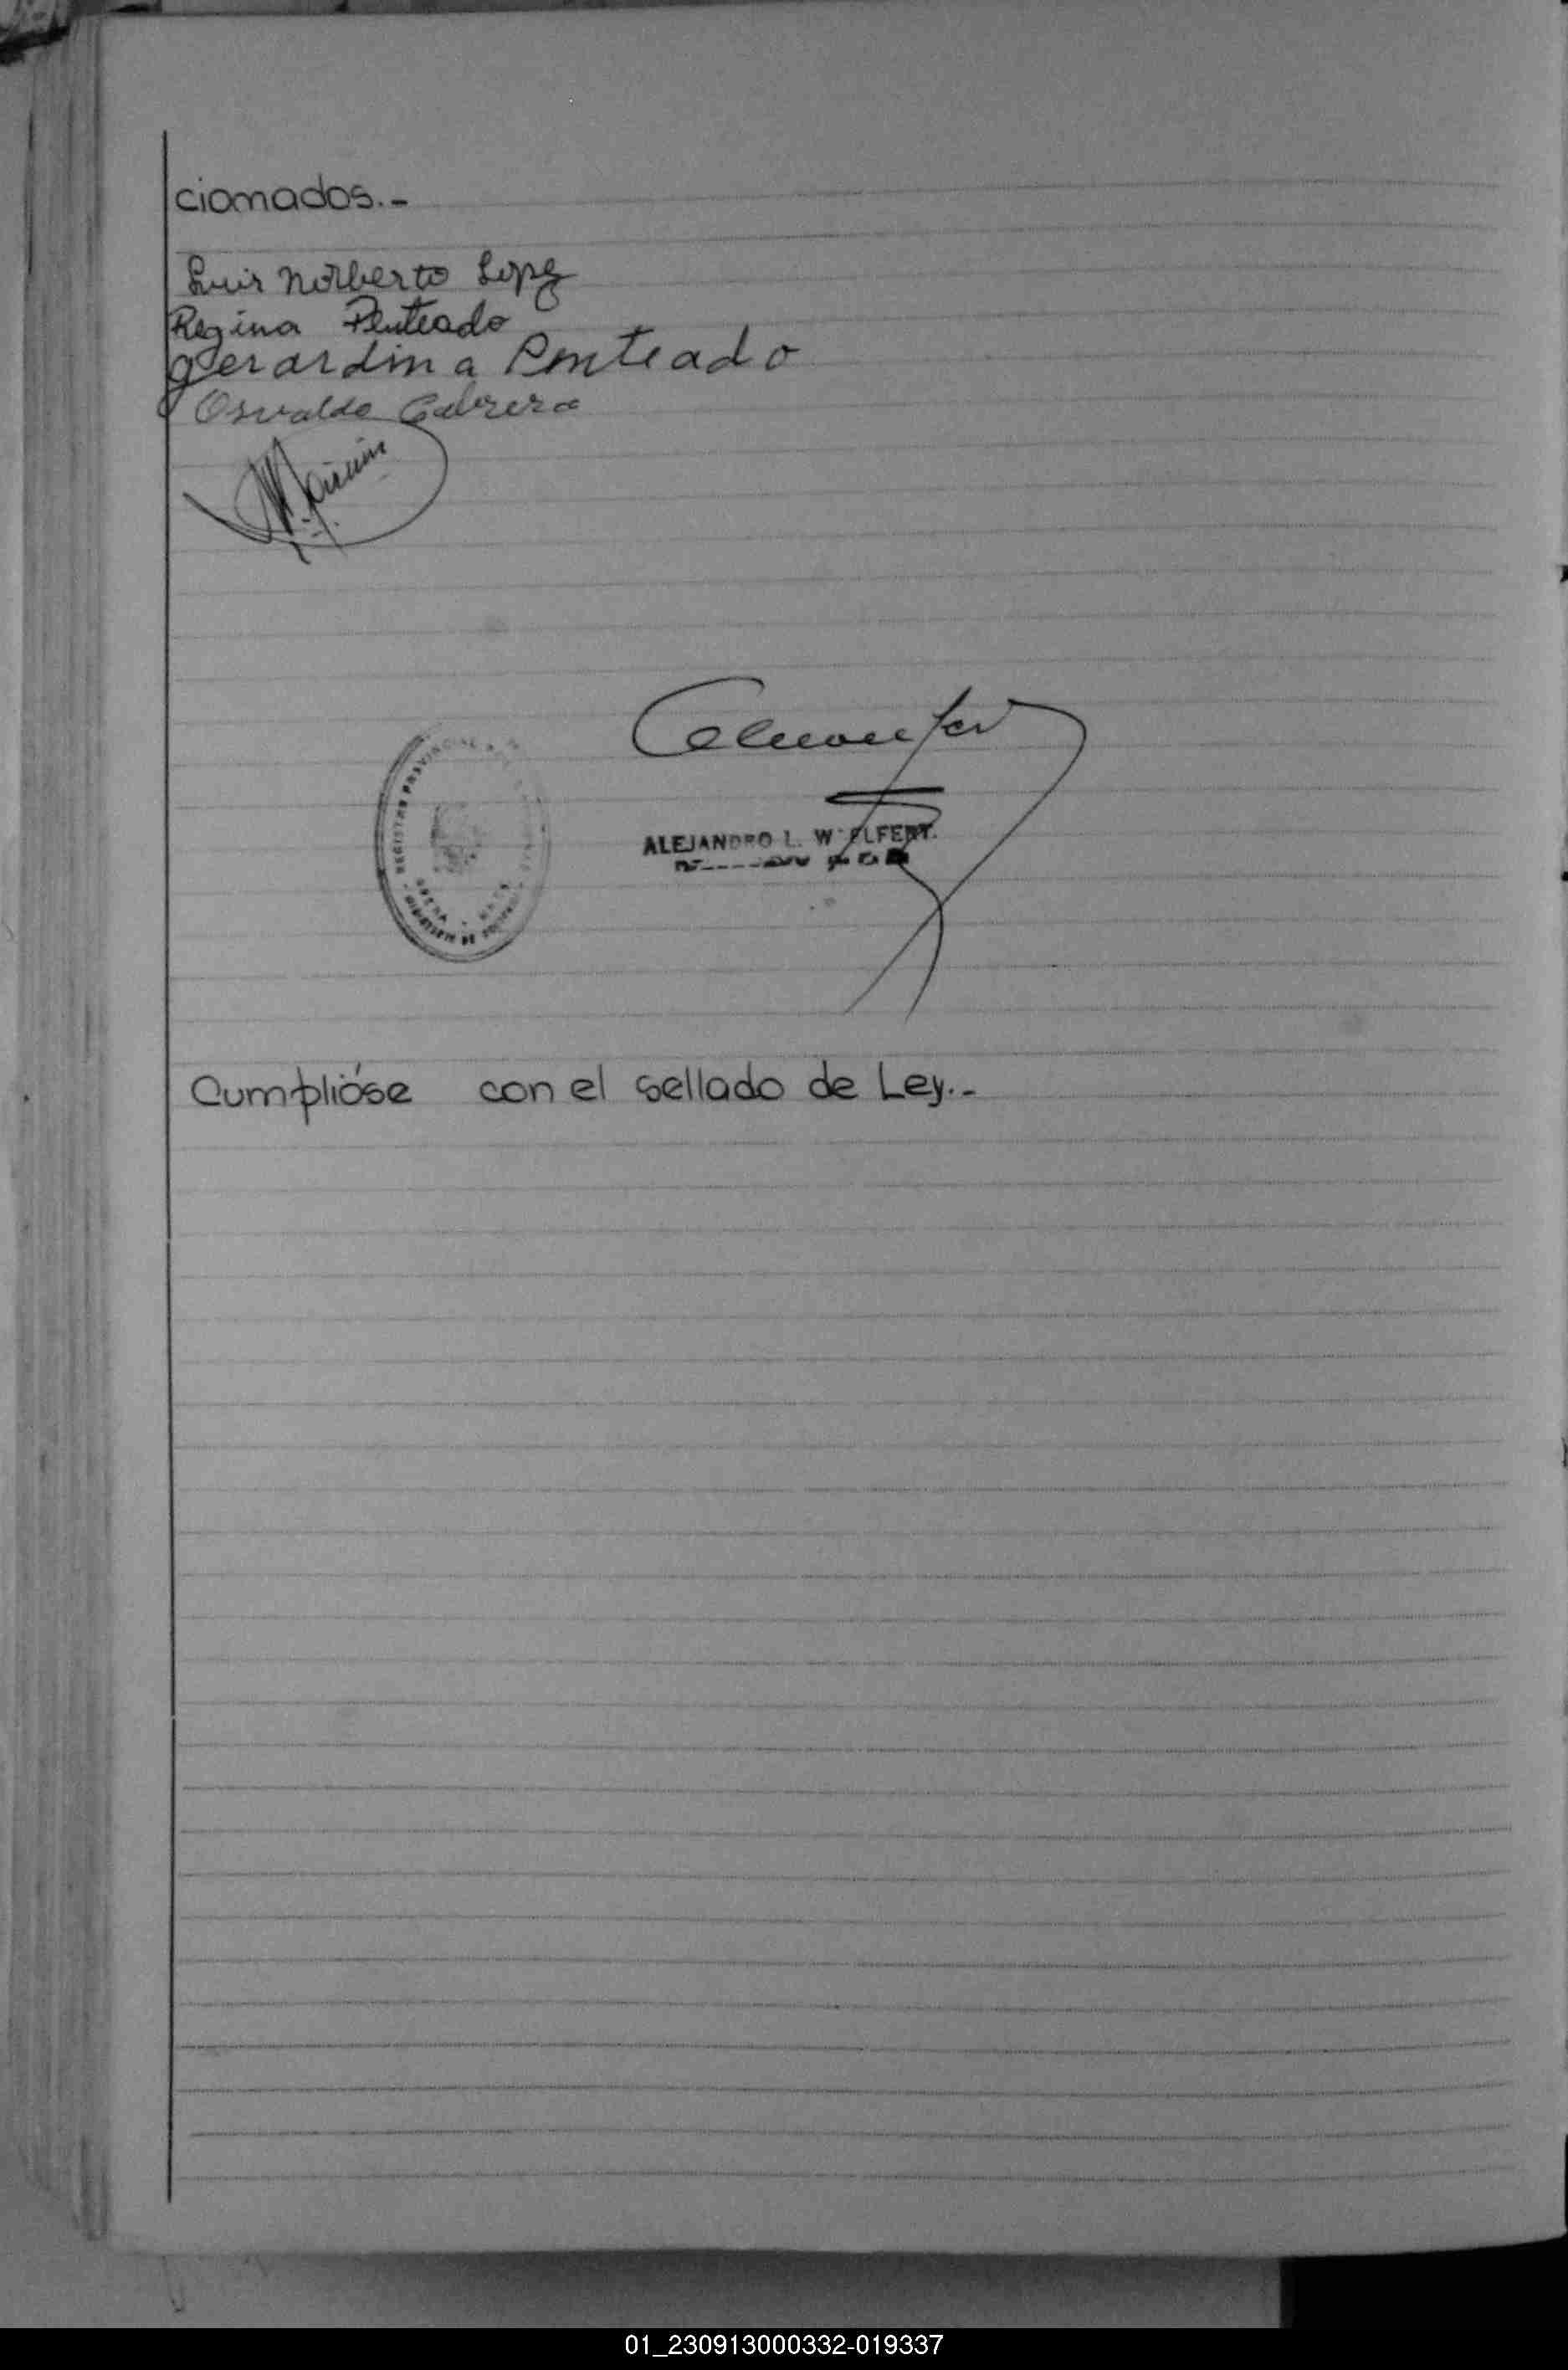 cionados.-
Luis Norberto Lopez
Regina Penteado
gerardina Penteado
Osvaldo Cabrera
REGISTRO PROVINCIAL
ALEJANDRO L. W ELFERT.
MINISTERIO DE
Cumplióse con el sellado de Ley.-
01_230913000332-019337